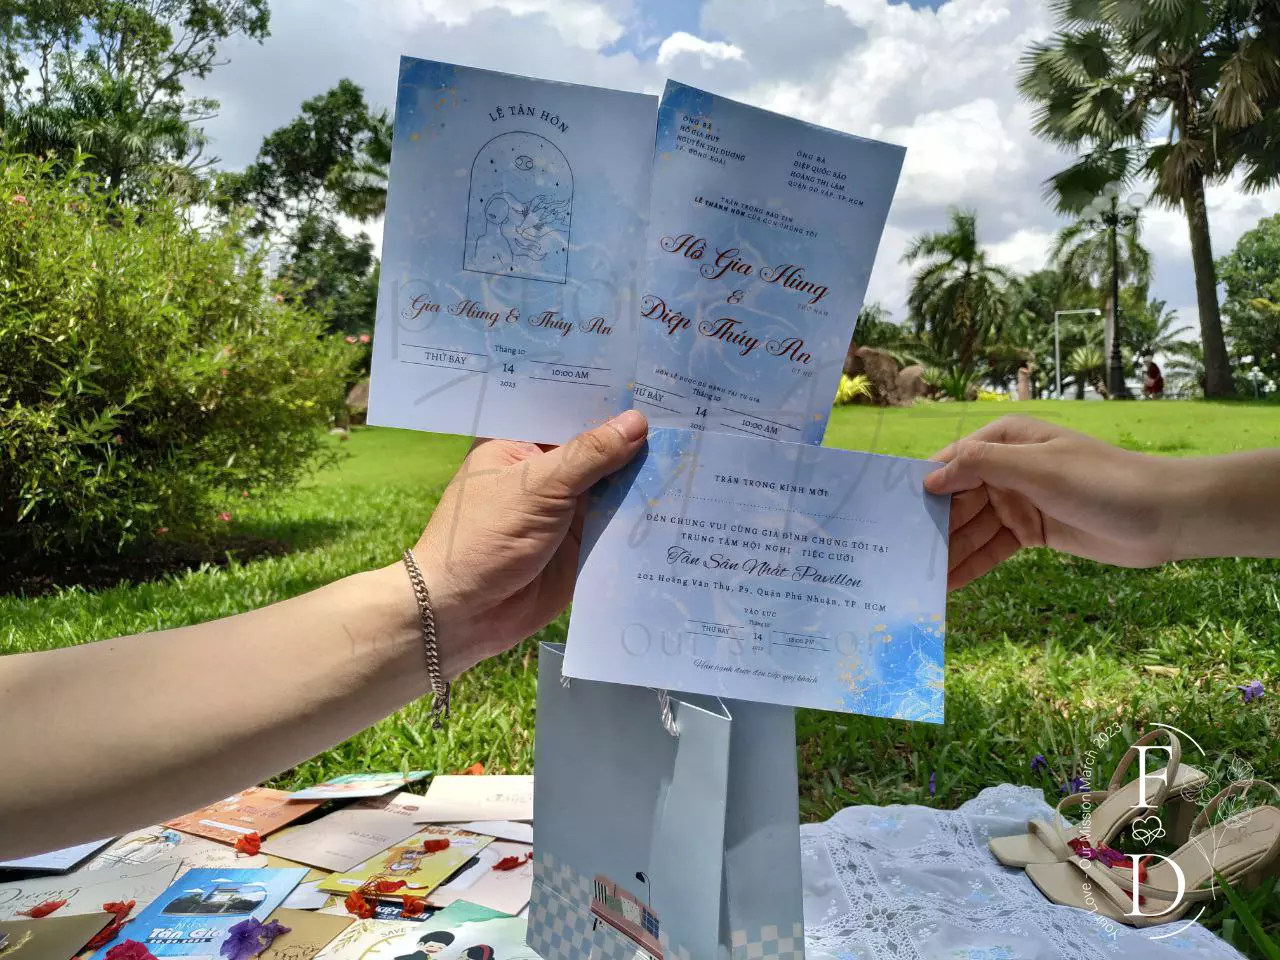 LỄ TÂN HÔN
Gia Hùng & Thúy An
Tháng 10
THỨ BẢY 14 10:00 AM
2023
ÔNG BÀ
HỒ GIA HUY
NGUYỄN THỊ DƯƠNG
TP. ĐỒNG XOÀI
ÔNG BÀ
DIỆP QUỐC BẢO
HOÀNG THỊ LÂM
QUẬN GÒ VẤP, TP. HCM
TRÂN TRỌNG BÁO TIN
LỄ THÀNH HÔN CỦA CON CHÚNG TÔI
Hồ Gia Hùng
THỨ NAM
&
Diệp Thúy An
ÚT NỮ
HÔN LỄ ĐƯỢC CỬ HÀNH TẠI TƯ GIA
Tháng 10
THỨ BẢY 14 10:00 AM
2023
TRÂN TRỌNG KÍNH MỜI
ĐẾN CHUNG VUI CÙNG GIA ĐÌNH CHÚNG TÔI TẠI
TRUNG TÂM HỘI NGHỊ - TIỆC CƯỚI
Tân Sơn Nhất Pavillon
202 Hoàng Văn Thụ, P9, Quận Phú Nhuận, TP. HCM
VÀO LÚC
Tháng 10
THỨ BẢY 14 18:00 PM
2023
Hân hạnh được đón tiếp quý khách
Your Love - Our Mission March 2023
F
D
Tân Gia
SAVE